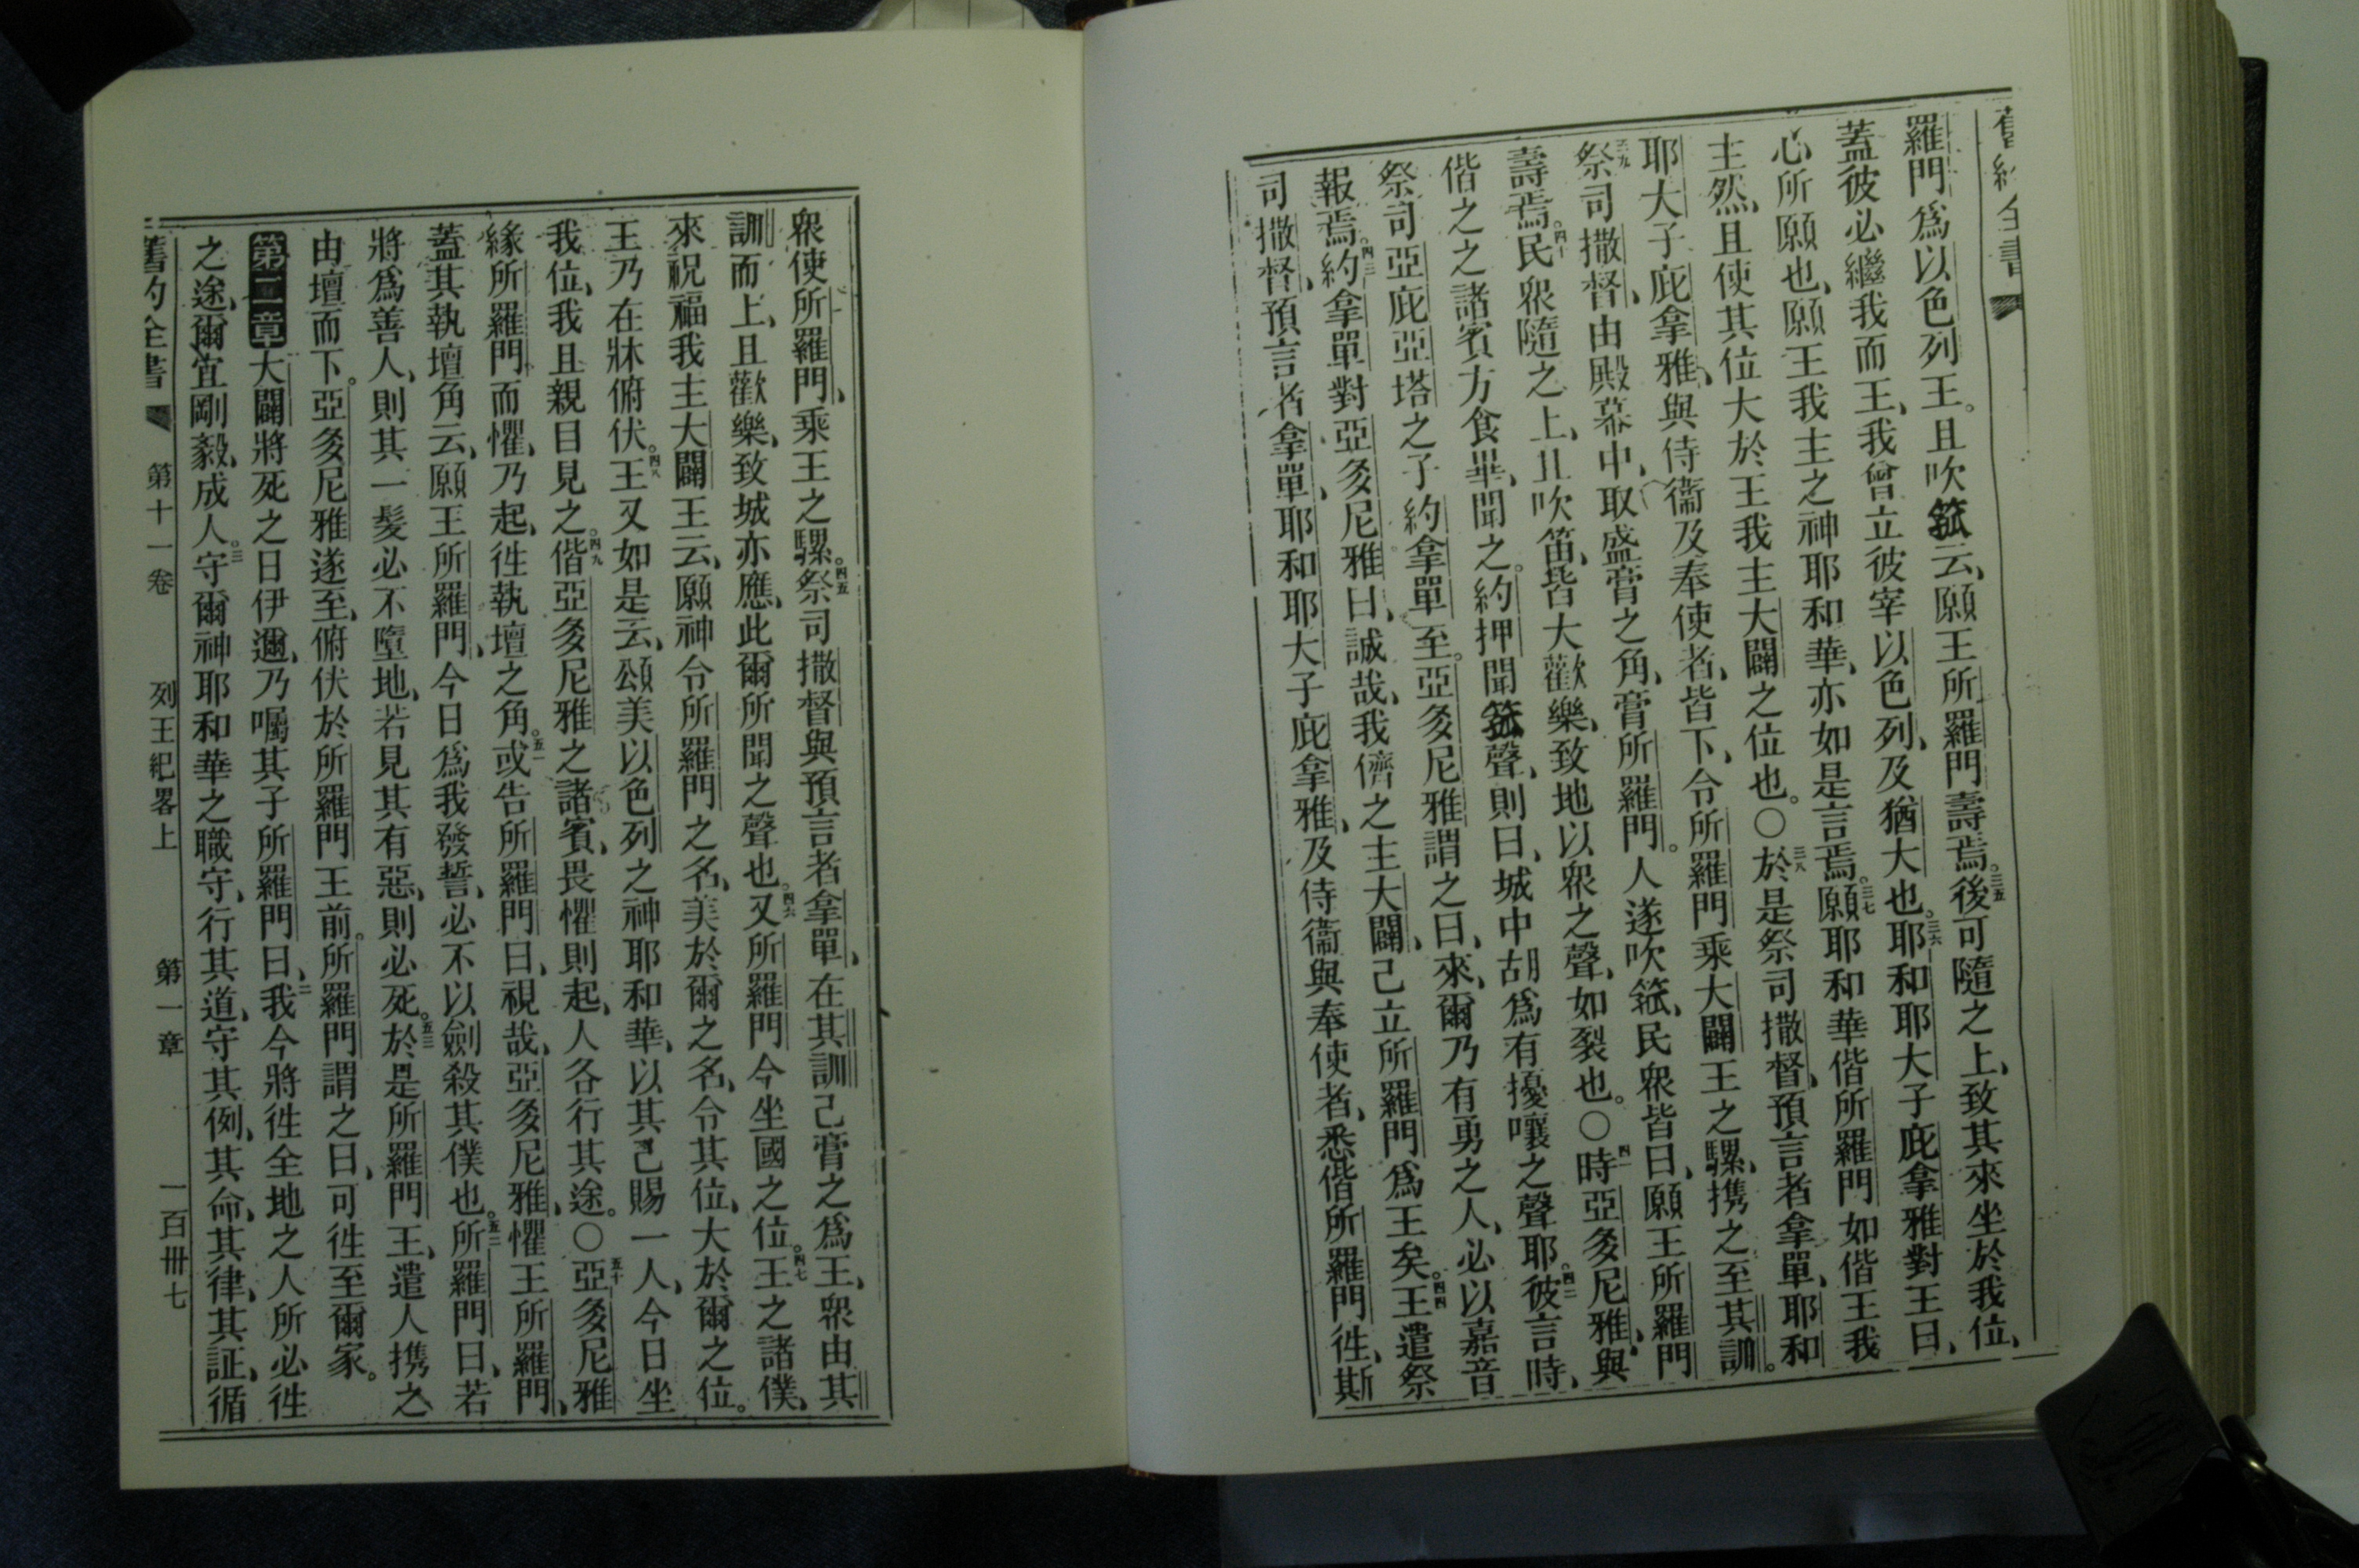 舊約全書
羅門爲以色列王。且吹箛云、願王所羅門壽焉。三五後可隨之上、致其來坐於我位、
蓋彼必繼我而王、我曾立彼宰以色列、及猶大也。三六耶和耶大子庇拿雅對王曰、
心所願也、願王我主之神耶和華、亦如是言焉。三七願耶和華偕所羅門如偕王我
主然、且使其位大於王我主大闢之位也。〇三八於是祭司撒督、預言者拿單、耶和
耶大子庇拿雅、與侍衞及奉使者、皆下、令所羅門乘大闢王之騾、携之至其訓。
三九祭司撒督、由殿幕中、取盛膏之角、膏所羅門。人遂吹箛、民衆皆曰、願王所羅門
壽焉。四十民衆隨之上、且吹笛、皆大歡樂、致地以衆之聲、如裂也。〇四一時亞多尼雅、與
偕之之諸賓方食畢、聞之。約押聞箛聲、則曰、城中胡爲有擾嚷之聲耶。四二彼言時、
祭司亞庇亞塔之子約拿單至。亞多尼雅謂之曰、來、爾乃有勇之人、必以嘉音
報焉。四三約拿單對亞多尼雅曰、誠哉、我儕之主大闢、己立所羅門爲王矣。四四王遣祭
司撒督、預言者拿單、耶和耶大子庇拿雅、及侍衞與奉使者、悉偕所羅門徃、斯
衆使所羅門、乘王之騾。四五祭司撒督與預言者拿單、在其訓己膏之爲王、衆由其
訓而上、且歡樂、致城亦應、此爾所聞之聲也。四六又所羅門今坐國之位。四七王之諸僕、
來祝福我主大闢王云、願神令所羅門之名、美於爾之名、令其位、大於爾之位。
王乃在牀俯伏。四八王又如是云、頌美以色列之神耶和華、以其己賜一人、今日坐
我位、我且親目見之。四九偕亞多尼雅之諸賓、畏懼則起、人各行其途。〇五十亞多尼雅
緣所羅門而懼、乃起、徃執壇之角。五一或告所羅門曰、視哉、亞多尼雅、懼王所羅門、
蓋其執壇角云、願王所羅門、今日爲我發誓、必不以劍殺其僕也。五二所羅門曰、若
將爲善人、則其一髮必不墮地、若見其有惡、則必死。五三於是所羅門王、遣人携之
由壇而下。亞多尼雅遂至、俯伏於所羅門王前。所羅門謂之曰、可徃至爾家。
第二章大闢將死之日伊邇、乃囑其子所羅門曰、二我今將徃全地之人所必徃
之途、爾宜剛毅、成人。三守爾神耶和華之職守、行其道、守其例、其命、其律、其証、循
舊約全書 第十一卷 列王紀畧上 第一章 一百卅七